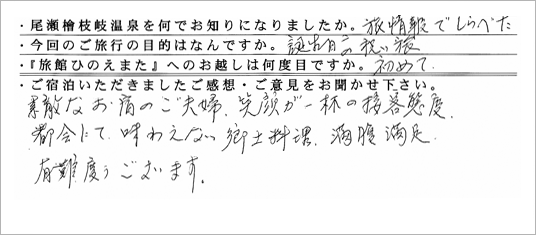 ・尾瀬檜枝岐温泉を何でお知りになりましたか。旅情報でしらべた
・今回のご旅行の目的はなんですか。誕生日の祝い旅
・『旅館ひのえまた』へのお越しは何度目ですか。初めて
・ご宿泊いただきましたご感想・ご意見をお聞かせ下さい。
素敵なお宿のご夫婦、笑顔が一杯の接客態度、
都会にて味わえない郷土料理、満腹満足
有難度うございます。